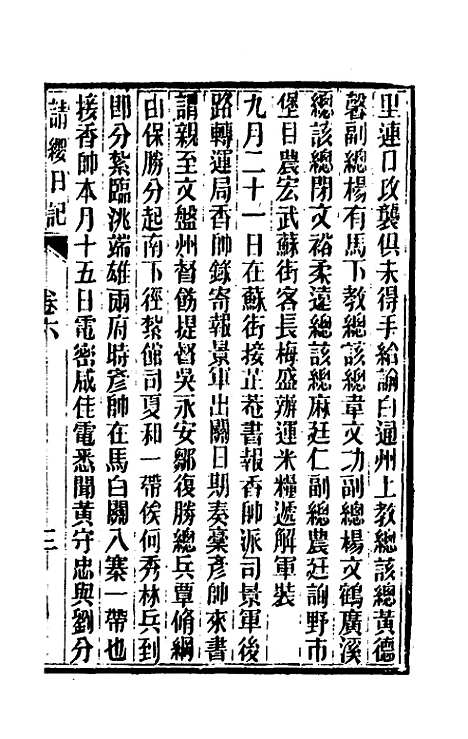 里連日攻襲俱未得手給諭白通州上教總該總黃德
馨副總楊有馬下教總該總韋文功副總楊文鶴廣溪
總該總閉文裕柔遠總該總麻廷仁副總農廷詢野市
堡目農宏武蘇街客長梅盛辦運米糧遞解軍裝
九月二十一日在蘇街接芷菴書報香帥派司景軍後
路轉運局香帥錄寄報景軍出關日期奏藁彥帥來書
請親至文盤州督飭提督吳永安鄒復勝總兵覃脩綱
由保勝分起南下徑紮館司夏和一帶俟何秀林兵到
卽分紮臨洮端雄兩府時彥帥在馬白關八寨一帶也
接香帥本月十五日電密咸佳電悉聞黃守忠與劉分
請纓日記
卷六
三